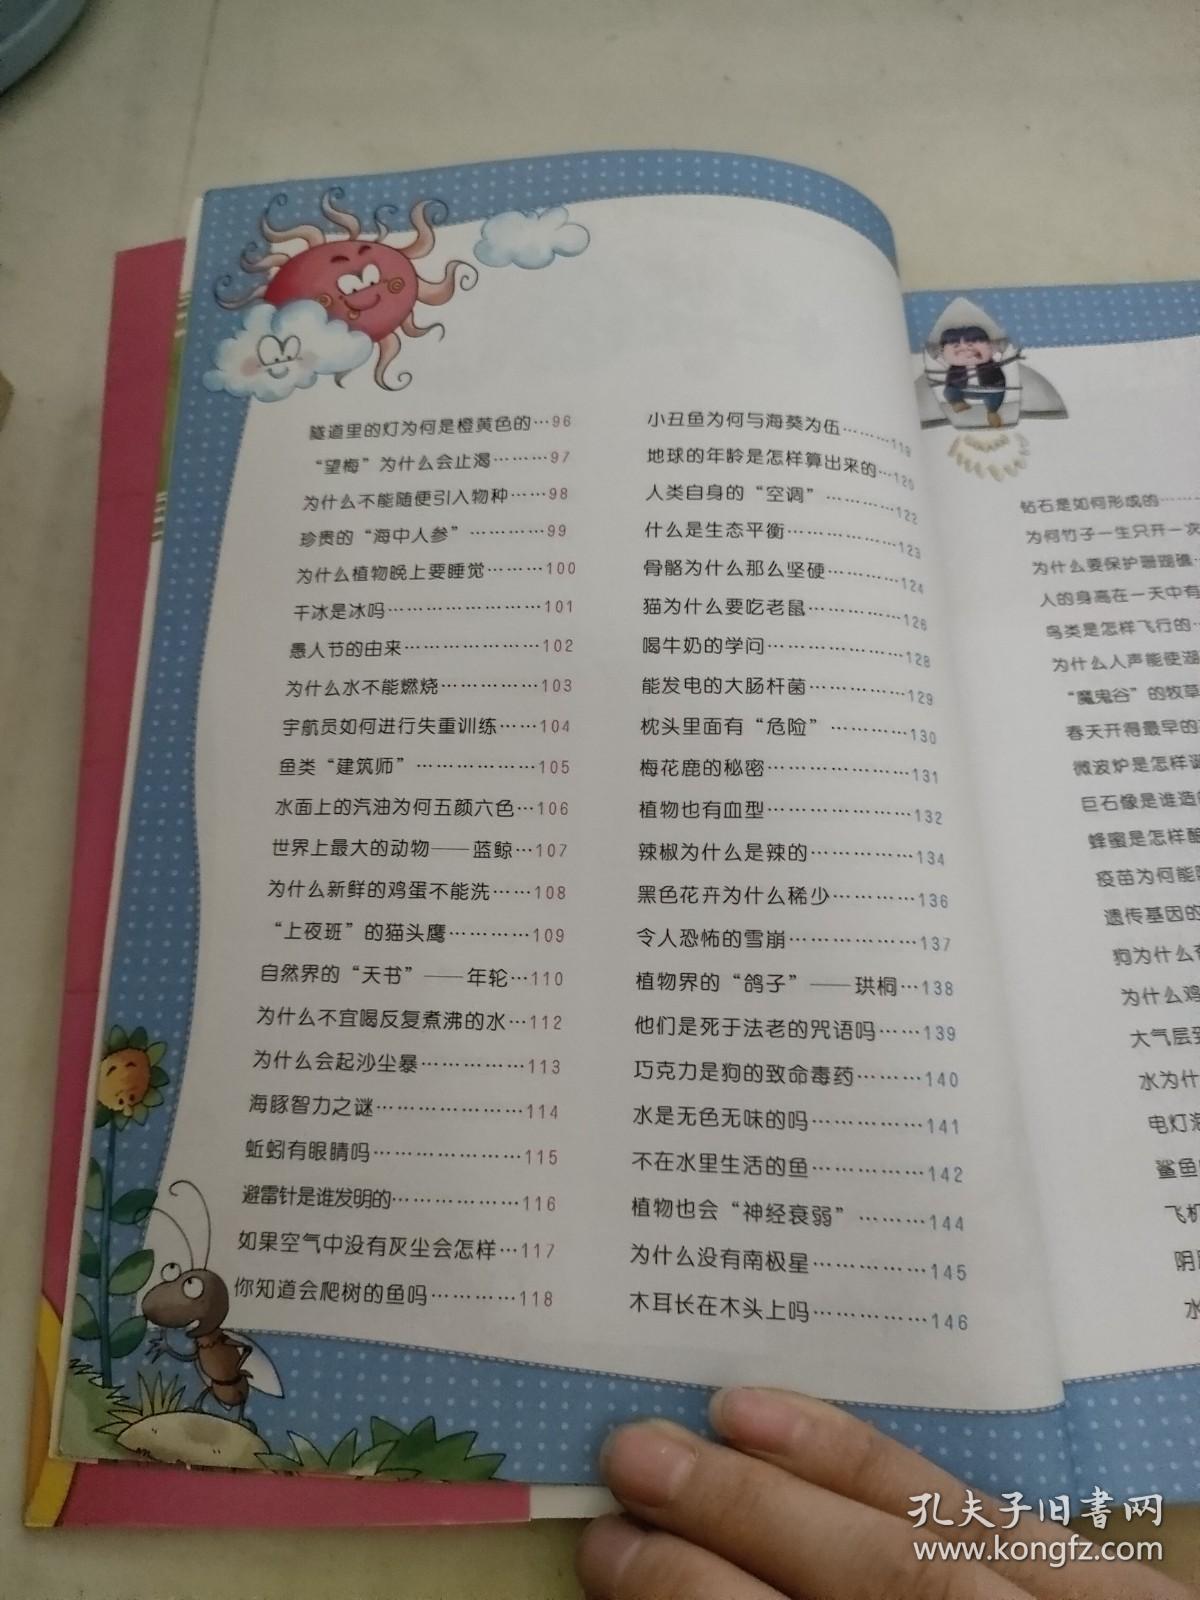 隧道里的灯为何是橙黄色的…96
“望梅”为什么会止渴………97
为什么不能随便引入物种……98
珍贵的“海中人参”…………99
为什么植物晚上要睡觉………100
干冰是冰吗……………………101
愚人节的由来…………………102
为什么水不能燃烧……………103
宇航员如何进行失重训练……104
鱼类“建筑师”………………105
水面上的汽油为何五颜六色…106
世界上最大的动物——蓝鲸…107
为什么新鲜的鸡蛋不能洗……108
“上夜班”的猫头鹰…………109
自然界的“天书”——年轮…110
为什么不宜喝反复煮沸的水…112
为什么会起沙尘暴……………113
海豚智力之谜…………………114
蚯蚓有眼睛吗…………………115
避雷针是谁发明的……………116
如果空气中没有灰尘会怎样…117
你知道会爬树的鱼吗…………118
小丑鱼为何与海葵为伍………119
地球的年龄是怎样算出来的…120
人类自身的“空调”…………122
什么是生态平衡………………123
骨骼为什么那么坚硬…………124
猫为什么要吃老鼠……………126
喝牛奶的学问…………………128
能发电的大肠杆菌……………129
枕头里面有“危险”…………130
梅花鹿的秘密…………………131
植物也有血型…………………132
辣椒为什么是辣的……………134
黑色花卉为什么稀少…………136
令人恐怖的雪崩………………137
植物界的“鸽子”——珙桐…138
他们是死于法老的咒语吗……139
巧克力是狗的致命毒药………140
水是无色无味的吗……………141
不在水里生活的鱼……………142
植物也会“神经衰弱”………144
为什么没有南极星……………145
木耳长在木头上吗……………146
钻石是如何形成的……
为何竹子一生只开一次
为什么要保护珊瑚礁…
人的身高在一天中有
鸟类是怎样飞行的…
为什么人声能使湖
“魔鬼谷”的牧草
春天开得最早的
微波炉是怎样诞
巨石像是谁造的
蜂蜜是怎样酿
疫苗为何能
遗传基因的
狗为什么
为什么鸡
大气层
水为什
电灯泡
鲨鱼
飞机
阴
水
孔夫子旧书网
www.kongfz.com